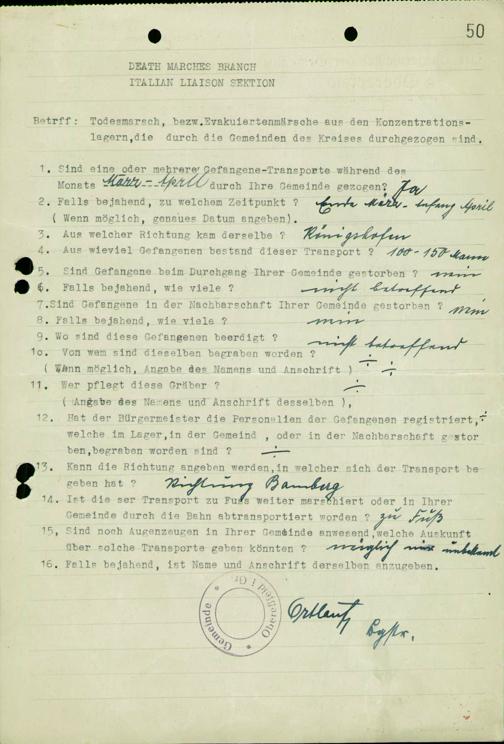 50
DEATH MARCHES BRANCH
ITALIAN LIAISON SEKTION
Betrff: Todesmarsch, bezw.Evakuiertenmärsche aus den Konzentrations-
lagern,die durch die Gemeinden des Kreises durchgezogen sind.
1. Sind eine oder mehrere Gefangene-Transporte während des
Monats März - April durch Ihre Gemeinde gezogen? Ja
2. Falls bejahend, zu welchem Zeitpunkt ? Ende März - Anfang April
( Wenn möglich, genaues Datum angeben).
3. Aus welcher Richtung kam derselbe ? Königshofen
4. Aus wieviel Gefangenen bestand dieser Transport ? 100 - 150 Mann
5. Sind Gefangene beim Durchgang Ihrer Gemeinde gestorben ? nein
6. Falls bejahend, wie viele ? nicht betreffend
7.Sind Gefangene in der Nachbarschaft Ihrer Gemeinde gestorben ? nein
8. Falls bejahend, wie viele ? nein
9. Wo sind diese Gefangenen beerdigt ? nicht betreffend
1o. Von wem sind dieselben begraben worden ? ÷
( Wenn möglich, Angabe des Namens und Anschrift ) ÷
11. Wer pflegt diese Gräber ? ÷
( Angabe des Namens und Anschrift desselben ),
12. Hat der Bürgermeister die Personalien der Gefangenen registriert, ÷
welche im Lager,in der Gemeind , oder in der Nachbarschaft gestor
ben,begraben worden sind ? ÷
13. Kann die Richtung angeben werden,in welcher sich der Transport be
geben hat ? Richtung Bamberg
14. Ist die ser Transport zu Fuss weiter marschiert oder in Ihrer
Gemeinde durch die Bahn abtransportiert worden ? zu Fuß
15, Sind noch Augenzeugen in Ihrer Gemeinde anwesend,welche Auskunft
über solche Transporte geben könnten ? möglich unbekannt
16. Falls bejahend, ist Name und Anschrift derselben anzugeben.
Gemeinde
Ortlauf
Bgstr.